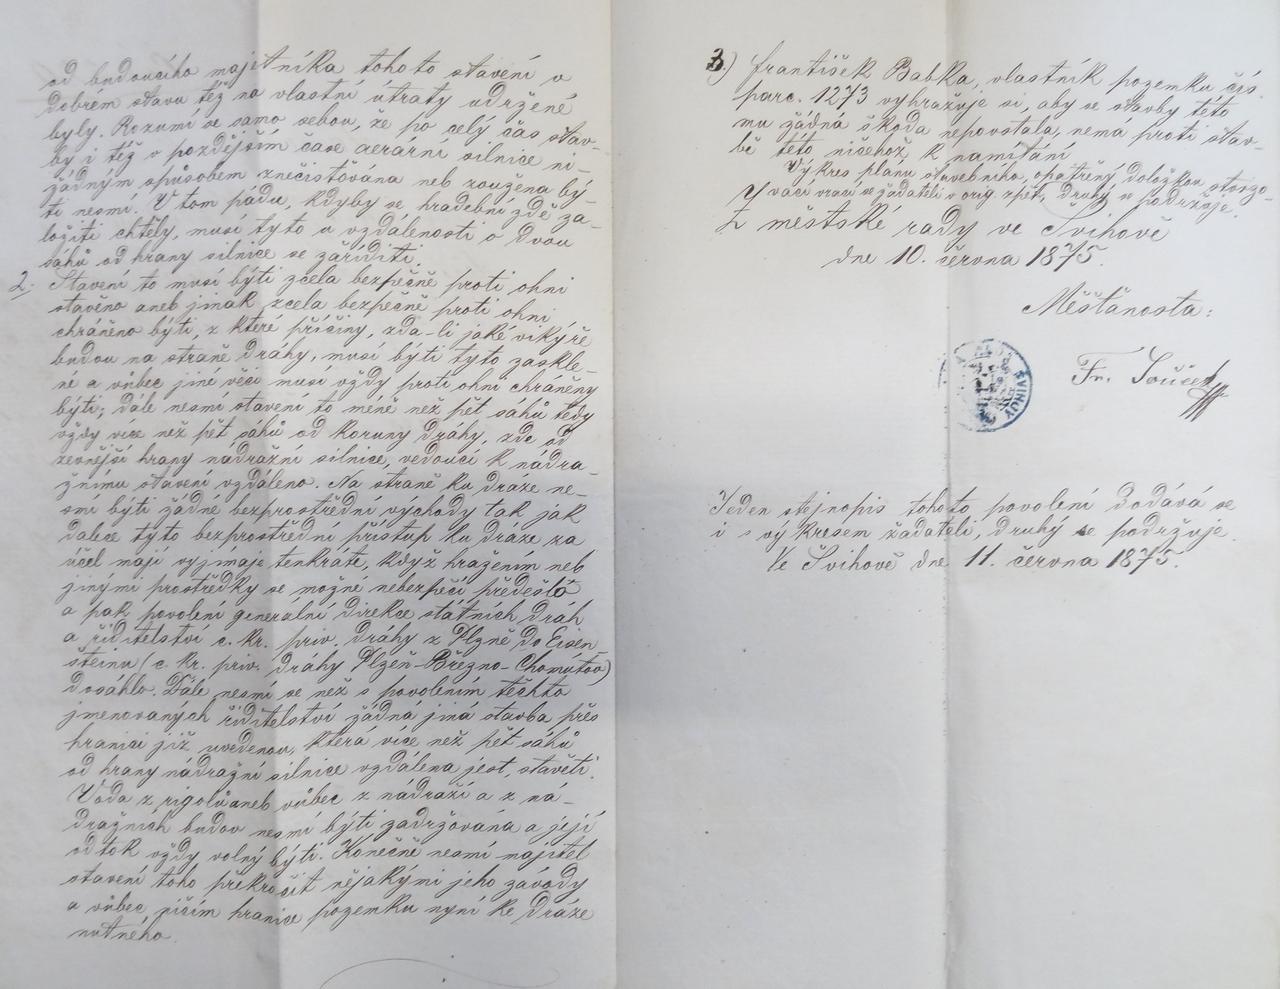 od budoucího majetníka tohoto stavení v
dobrém stavu též na vlastní útraty udržené
byly. Rozumí se samo sebou, že po celý čas stav-
by i též v pozdějším čase aerarní silnice ni-
žádným spůsobem znečistována neb zoužena bý-
ti nesmí. V tom pádu, kdyby se hradební zdě za-
ložiti chtěly, musí tyto u vzdálenosti o dvou
sáhů od hrany silnice se zaříditi.
2. Stavení to musí býti zcela bezpečně proti ohni
stavěno aneb jinak zcela bezpečně proti ohni
chráněno býti, z které příčiny, zda-li jaké vikýře
budou na straně dráhy, musí býti tyto zaskle-
né a vůbec jiné věci musí vždy proti ohni chráněny
býti; dále nesmí stavení to méně než pět sáhů tedy
vždy více než pět sáhů od koruny dráhy, zde od
zevnější hrany nádražní silnice, vedoucí k nádra-
žnímu stavení vzdáleno. Na straně ku dráze ne-
smí býti žádné bezprostřední východy tak jak
dalece tyto bezprostřední přístup ku dráze za
účel mají vyjímaje tenkráte, když hražením neb
jinými prostředky se možné nebezpečí předešlo
a pak povolení generalní direkce státních drah
a ředitelství c. kr. priv. dráhy z Plzně do Eisen-
šteinu (c. kr. priv. dráhy Plzeň-Březno-Chomútov)
dosáhlo. Dále nesmí se než s povolením těchto
jmenovaných ředitelství žádná jiná stavba přes
hranici již uvedenou, která více než pět sáhů
od hrany nádražní silnice vzdálena jest, stavěti.
Voda z rigolů aneb vůbec z nádraží a z ná-
dražních budov nesmí býti zadržována a její
odtok vždy volný býti. Konečně nesmí majitel
stavení toho překročit nějakými jeho závody
a vůbec ničím hranice pozemku nyní ke dráze
nutného.
3.) František Babka, vlastník pozemku čís.
parc. 1273 vyhražuje si, aby se stavby této
mu žádná škoda nepovstala, nemá proti stav-
bě této ničehož k namítání.
Výkres planu stavebního, opatřený doložkou stvrzo-
vací vrací se žadateli v orig. zpět, druhý se podržuje.
Z městské rady ve Švihově
dne 10. června 1875.
Měšťanosta:
Fr. Souček
Jeden stejnopis tohoto povolení dodává se
i s výkresem žadateli, druhý se podržuje.
Ve Švihově dne 11. června 1875.